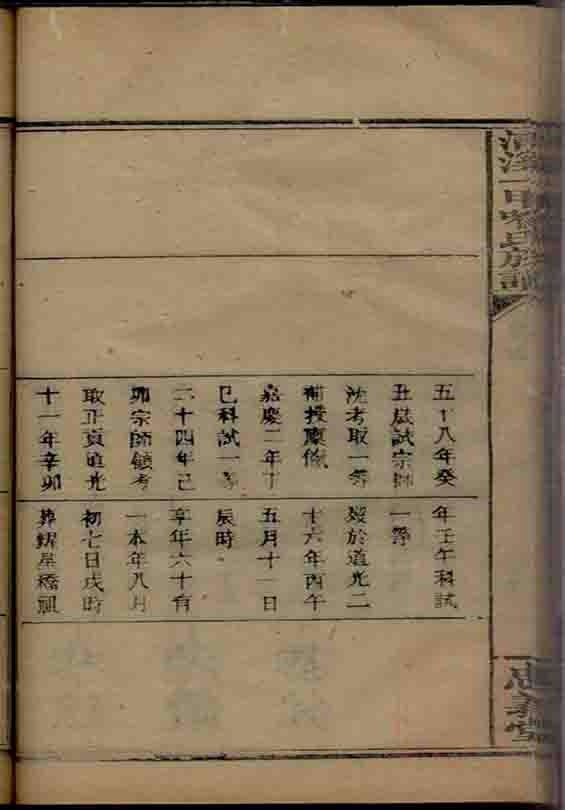 溪一甲管氏族譜
忠義堂
五十八年癸
丑嵗試宗師
沈考取一等
補授廪餼
嘉慶二年丁
巳科試一等
二十四年己
卯宗師顧考
取正貢道光
十一年辛卯
年壬午科試
一等
歿於道光二
十六年丙午
五月十一日
辰時
享年六十有
一本年八月
初七日戌時
葬星橋祖